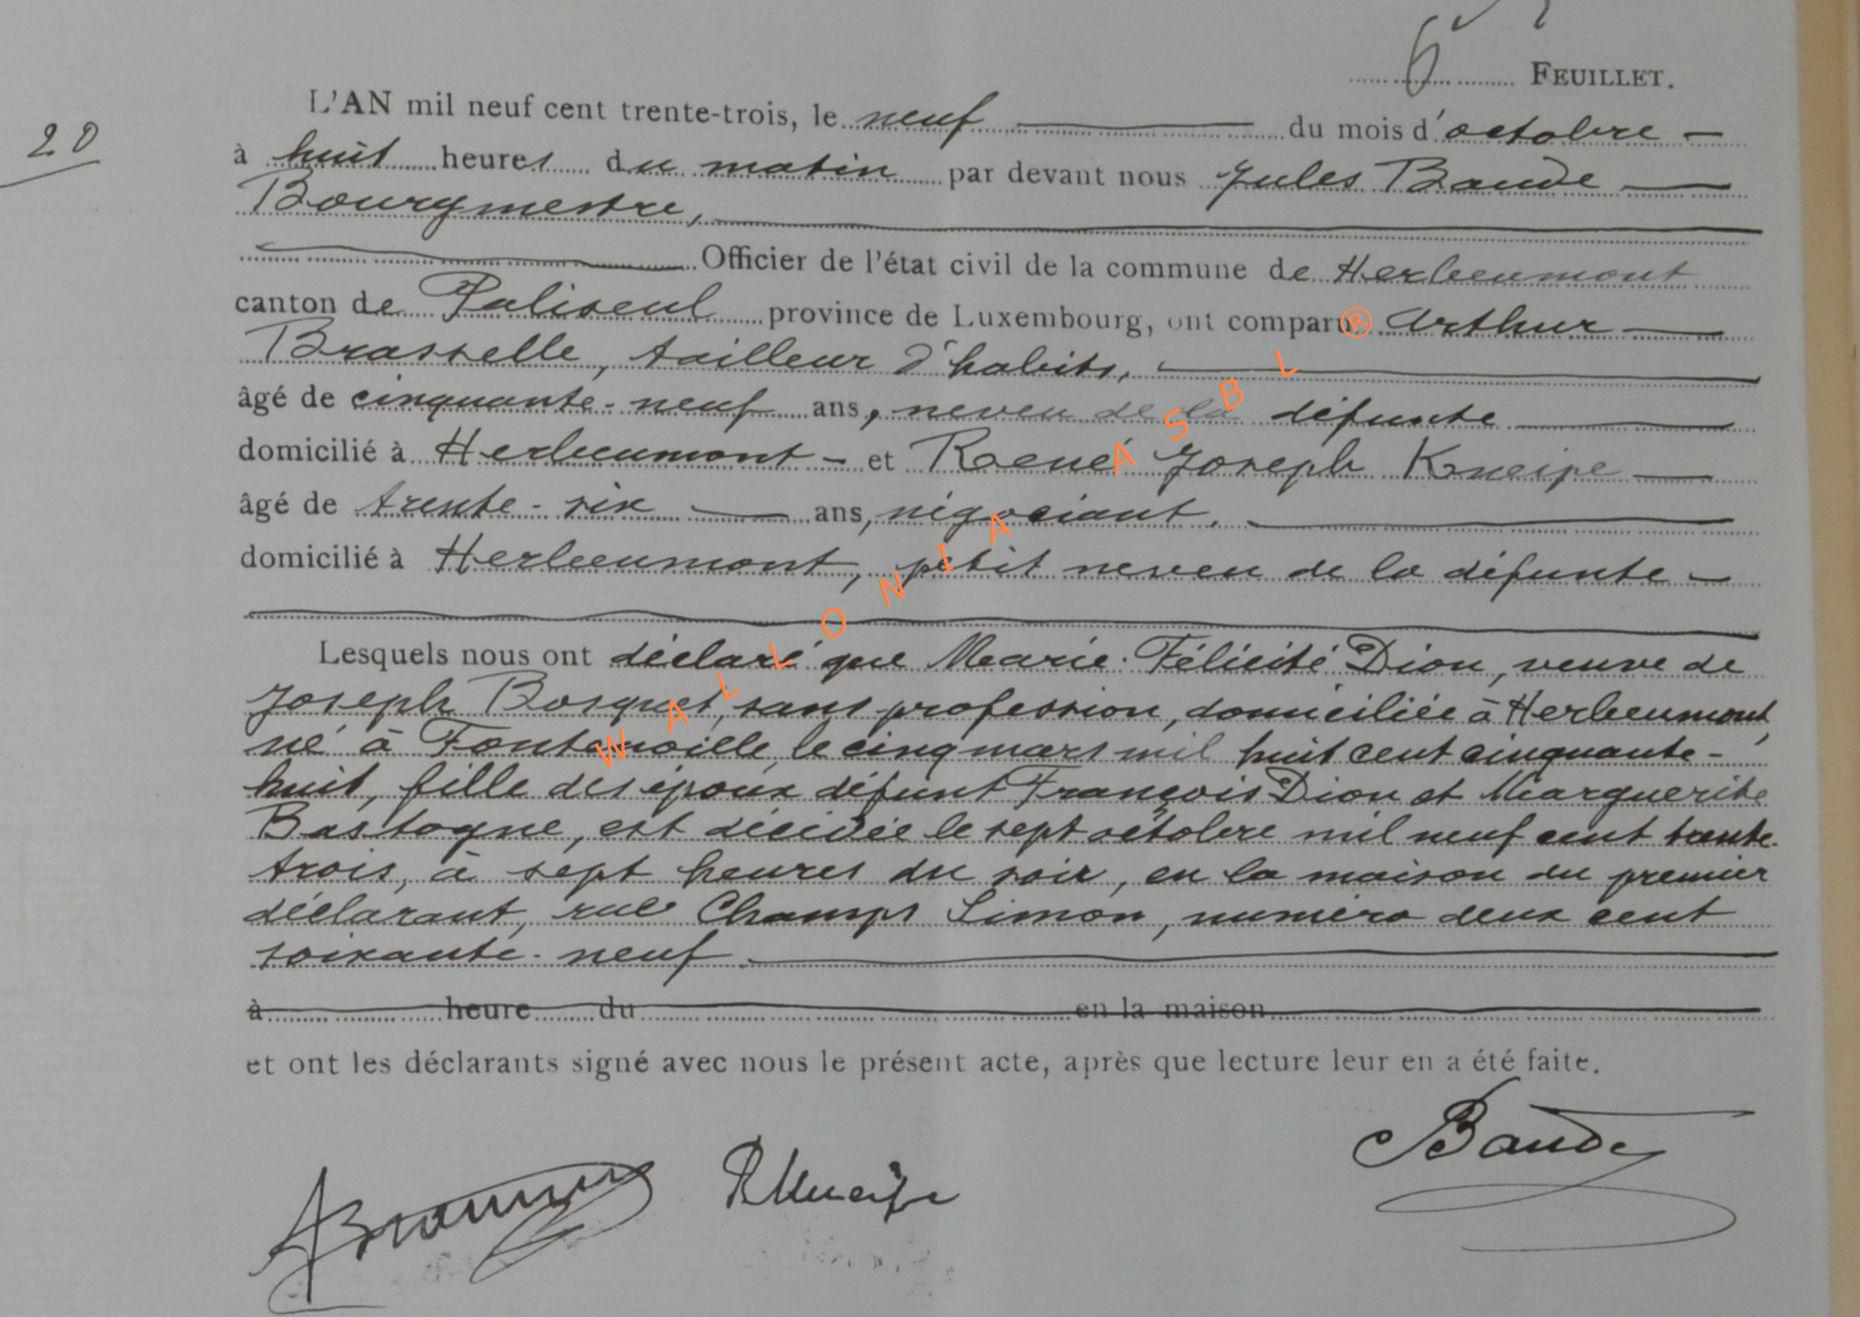 6 FEUILLET.
20
L'AN mil neuf cent trente-trois, le neuf du mois d'octobre
à huit heures du matin par devant nous Jules Baude
Bourgmestre,
Officier de l'état civil de la commune de Herbeumont
canton de Paliseul province de Luxembourg, ont comparu Arthur
Brasselle, tailleur d'habits,
âgé de cinquante-neuf ans, neveu de la défunte
domicilié à Herbeumont - et René Joseph Kneipe
âgé de trente-six ans, négociant,
domicilié à Herbeumont, petit neveu de la défunte
Lesquels nous ont déclaré que Marie Félicité Dion, veuve de
Joseph Bosquet, sans profession, domiciliée à Herbeumont,
né à Fontenoille, le cinq mars mil huit cent cinquante-
huit, fille des époux défunt François Dion et Marguerite
Bastogne, est décédée le sept octobre mil neuf cent trente-
trois, à sept heures du soir, en la maison du premier
déclarant, rue Champs Simon, numéro deux cent
soixante-neuf.
à heure du en la maison
et ont les déclarants signé avec nous le présent acte, après que lecture leur en a été faite.
Baude
RKneipe
WALLONIA ASBL ®